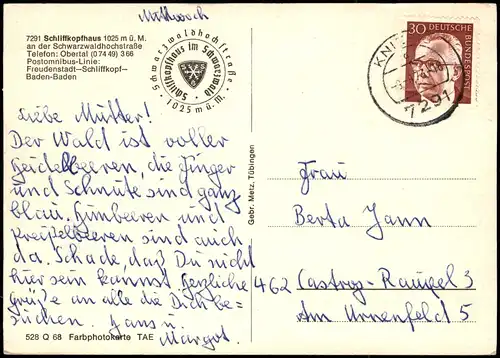 Mittwoch
7291 Schliffkopfhaus 1025 m ü. M.
an der Schwarzwaldhochstraße
Telefon: Obertal (074 49) 3 66
Postomnibus-Linie:
Freudenstadt–Schliffkopf–
Baden-Baden
Schwarzwaldhochstraße
Schliffkopfhaus im Schwarzwald
1025 m ü. M.
30
DEUTSCHE
BUNDESPOST
7291
Liebe Mutter!
Der Wald ist voller
Heidelbeeren, die Finger
und Schnute sind ganz
blau. Himbeeren und
Preißelbeeren sind auch
da. Schade, daß Du nicht
hier sein kannst. Herzliche
Grüße an alle die Dich be-
suchen. Hans u.
Margot.
Gebr. Metz, Tübingen
Frau
Berta Jann
462 Castrop-Rauxel 3
Am Urnenfeld 5
528 Q 68 Farbphotokarte TAE